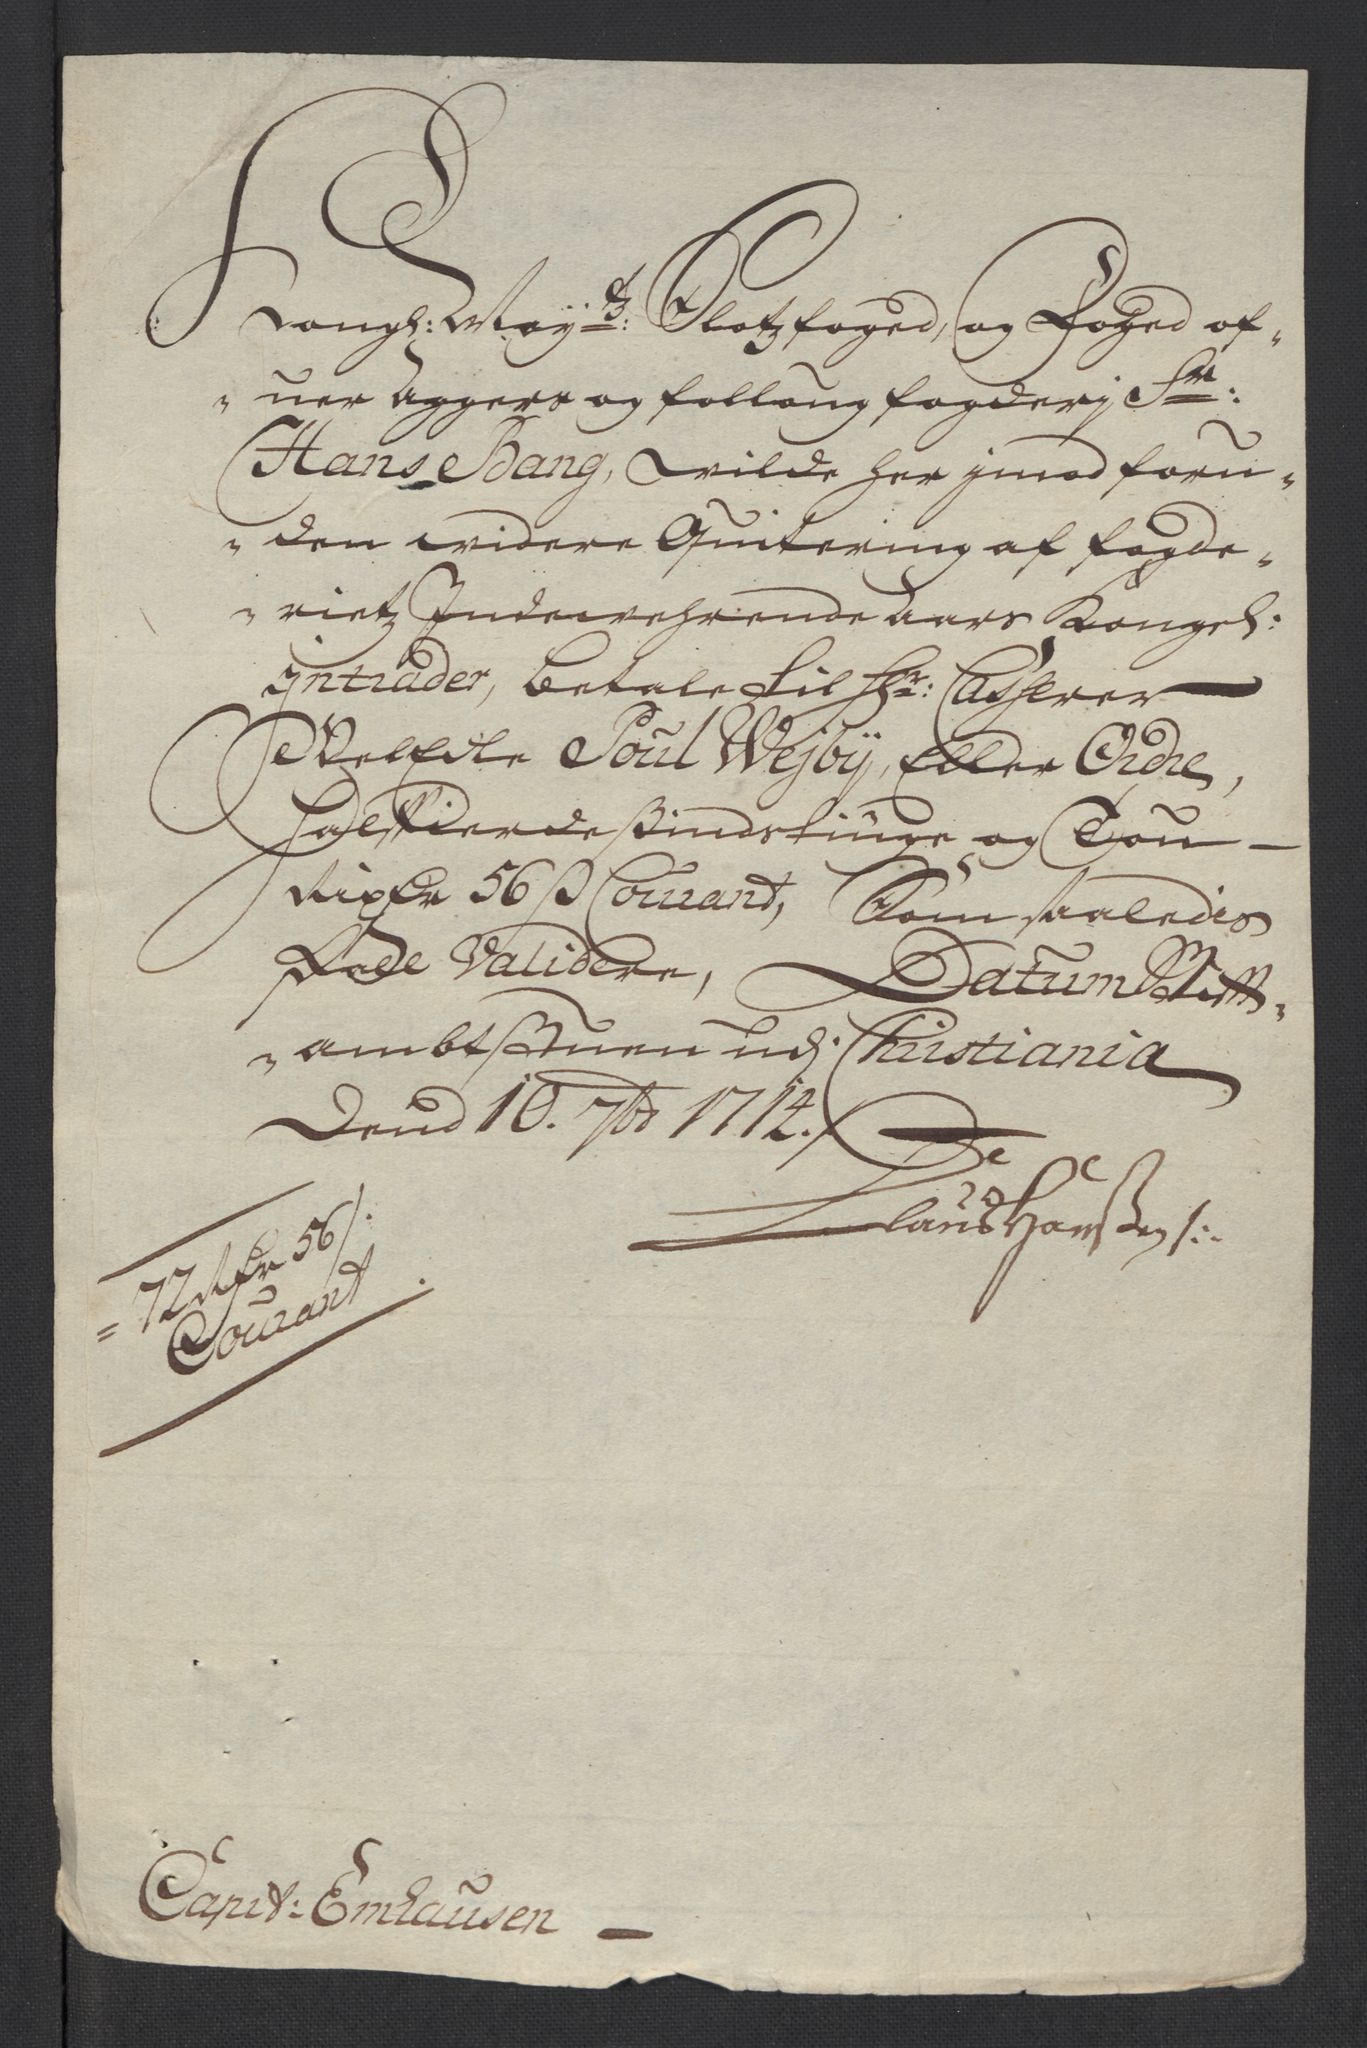 Kongl: Mayts: Slotzfoged, og Foged of-
-uer Aggers og folloug fogderj Sr:
Hans Bang, wilde her jmod foru-
-den widere Quitering af fogde-
-rietz Indewehrende Aars Kongel:
Jntrader, betale til Hr: Casserer
WelEdle Poul Wejbÿ, Eller Ordre,
halffierdesindstiuge og Tou
RixDr 56 ß Courant, Som saaledis
skal Validere, Datum Stift-
-ambtstuen udj Christiania
Dend 10. 7br 1712.
Claus Hanssen
72 Rdr 56 ß:
Courant
Capit: Emhausen